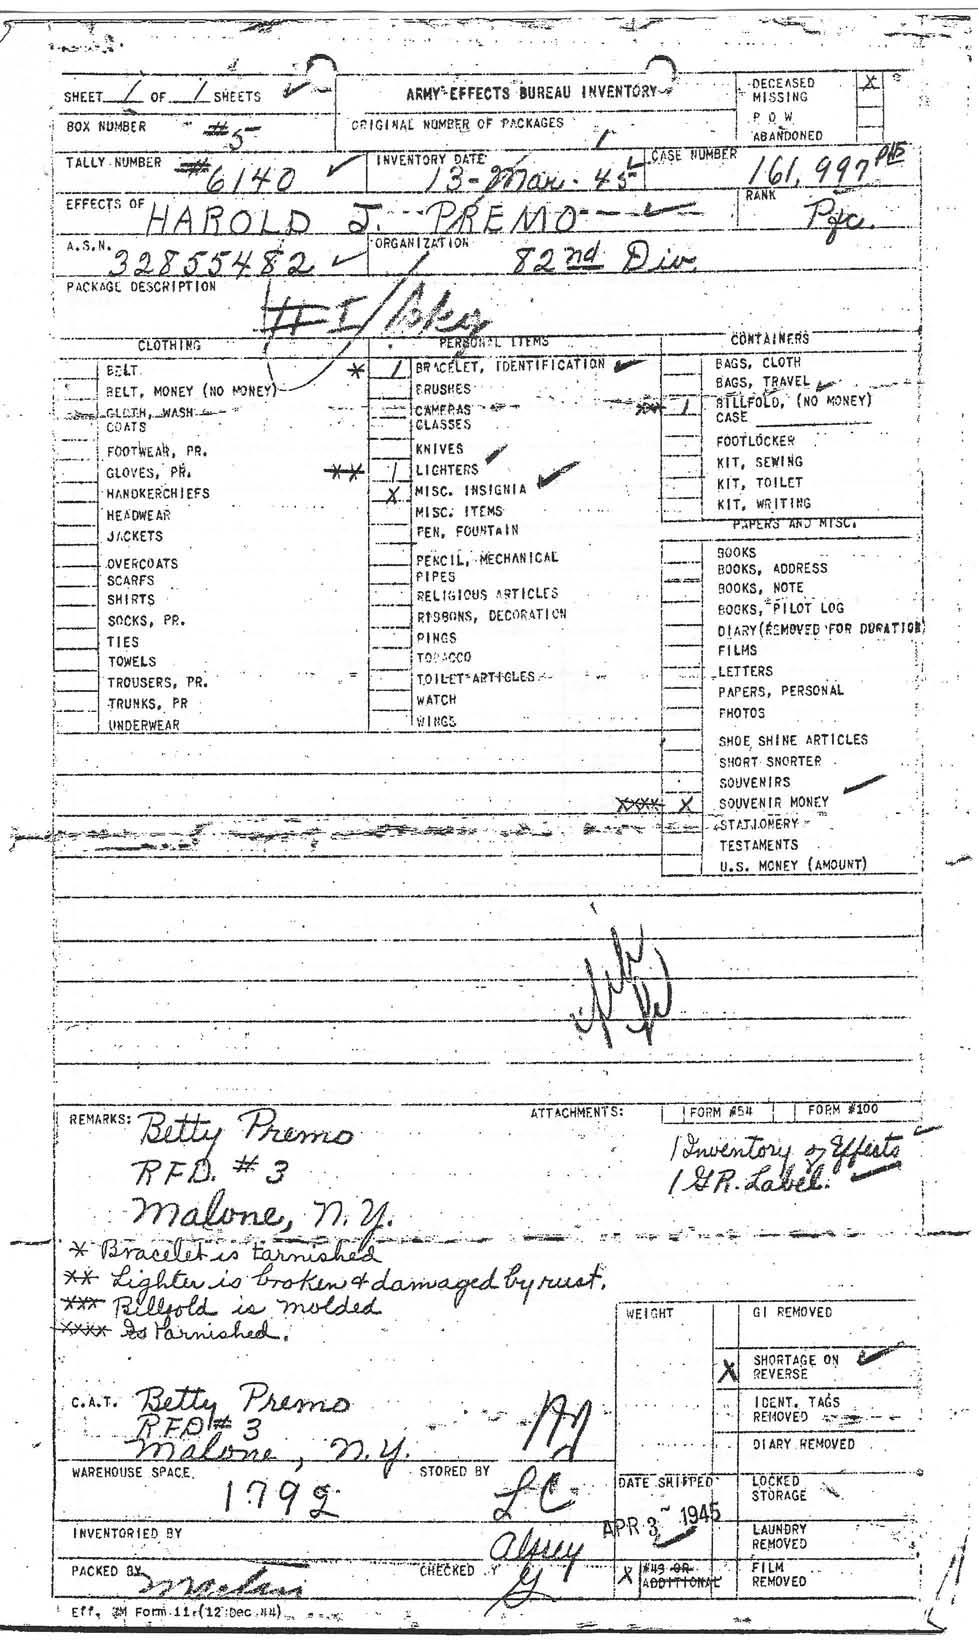 SHEET 1 OF 1 SHEETS
ARMY EFFECTS BUREAU INVENTORY
DECEASED X
MISSING
P O W
ABANDONED
BOX NUMBER #5
ORIGINAL NUMBER OF PACKAGES 1
TALLY NUMBER #6140
INVENTORY DATE 13-Mar-45
CASE NUMBER 161,997
EFFECTS OF HAROLD J. PREMO
RANK Pfc.
A.S.N. 32855482
ORGANIZATION 82nd Div.
PACKAGE DESCRIPTION
CLOTHING
BELT
BELT, MONEY (NO MONEY)
CLOTH, WASH
COATS
FOOTWEAR, PR.
GLOVES, PR.
HANDKERCHIEFS
HEADWEAR
JACKETS
OVERCOATS
SCARFS
SHIRTS
SOCKS, PR.
TIES
TOWELS
TROUSERS, PR.
TRUNKS, PR
UNDERWEAR
PERSONAL ITEMS
* 1 BRACELET, IDENTIFICATION
BRUSHES
CAMERAS
GLASSES
KNIVES
** 1 LIGHTERS
X MISC. INSIGNIA
MISC. ITEMS
PEN, FOUNTAIN
PENCIL, MECHANICAL
PIPES
RELIGIOUS ARTICLES
RIBBONS, DECORATION
RINGS
TOBACCO
TOILET ARTICLES
WATCH
WINGS
CONTAINERS
BAGS, CLOTH
BAGS, TRAVEL
*** 1 BILLFOLD, (NO MONEY)
CASE
FOOTLOCKER
KIT, SEWING
KIT, TOILET
KIT, WRITING
PAPERS AND MISC.
BOOKS
BOOKS, ADDRESS
BOOKS, NOTE
BOOKS, PILOT LOG
DIARY (REMOVED FOR DURATION)
FILMS
LETTERS
PAPERS, PERSONAL
PHOTOS
SHOE SHINE ARTICLES
SHORT SNORTER
SOUVENIRS
XXXX X SOUVENIR MONEY
STATIONERY
TESTAMENTS
U.S. MONEY (AMOUNT)
REMARKS: Betty Premo
RFD. #3
Malone, N.Y.
ATTACHMENTS: FORM #54 FORM #100
1 Inventory of Effects
1 GR. Label.
* Bracelet is tarnished
** Lighter is broken & damaged by rust.
*** Billfold is molded
XXXX Is tarnished.
C.A.T. Betty Premo
RFD #3
Malone, N.Y.
WEIGHT
GI REMOVED
X SHORTAGE ON REVERSE
IDENT. TAGS REMOVED
DIARY REMOVED
WAREHOUSE SPACE 1792
STORED BY LC
DATE SHIPPED APR 3 1945
LOCKED STORAGE
INVENTORIED BY
LAUNDRY REMOVED
PACKED BY
CHECKED BY
X #43 OR ADDITIONAL
FILM REMOVED
Eff. QM Form 11r (12 Dec 44)